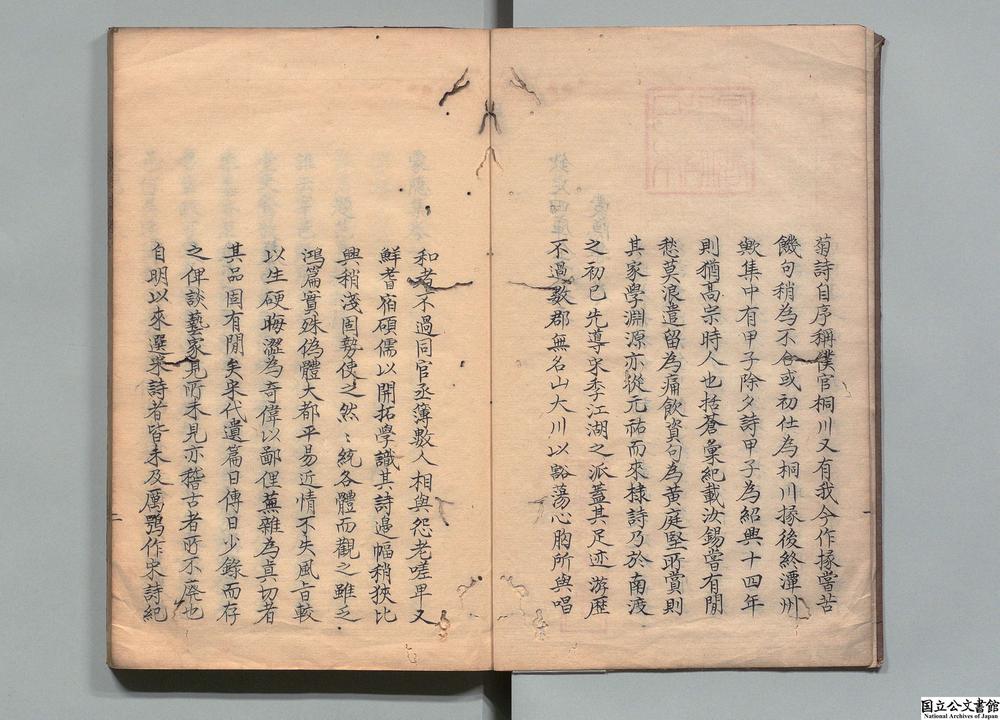 菊詩自序稱僕官桐川又有我今作掾嘗苦
饑句稍為不合或初仕為桐川掾後終潭州
歟集中有甲子除夕詩甲子為紹興十四年
則猶高宗時人也括蒼彙紀載汝錫嘗有閒
愁莫浪遣留為痛飲資句為黄庭堅所賞則
其家學淵源亦從元祐而來棣詩乃於南渡
之初已先導宋季江湖之派蓋其足迹游歷
不過數郡無名山大川以豁蕩心胸所與唱
和者不過同官丞簿數人相與怨老嗟卑又
鮮耆宿碩儒以開拓學識其詩邊幅稍狹比
興稍淺固勢使之然然統各體而觀之雖乏
鴻篇實殊偽體大都平易近情不失風旨較
以生硬晦澀為奇偉以鄙俚蕪雜為真切者
其品固有閒矣宋代遺篇日傳日少錄而存
之俾談藝家見所未見亦稽古者所不廢也
自明以來選宋詩者皆未及厲鶚作宋詩紀
国立公文書館
National Archives of Japan